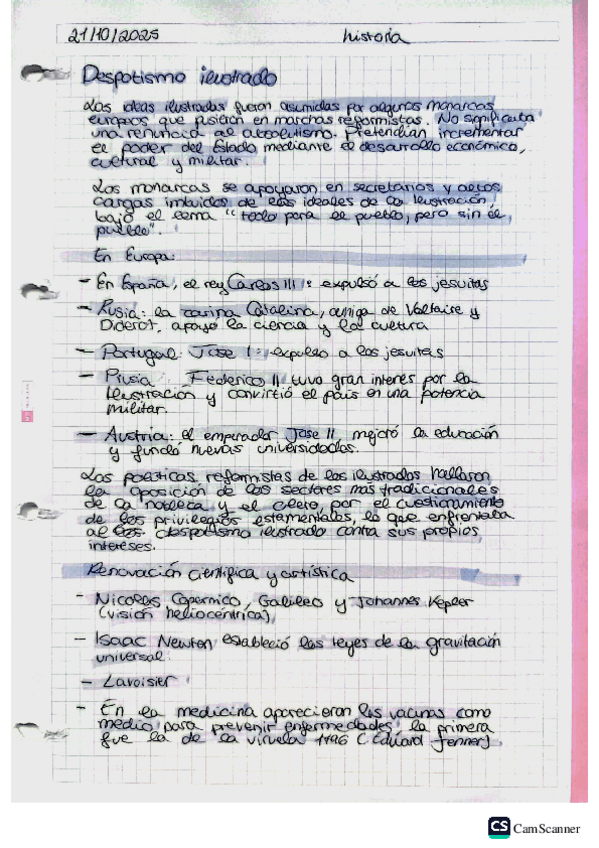 21/10/2025 historia
Despotismo ilustrado
Las ideas ilustradas fueron asumidas por algunos monarcas
europeos que pusieron en marchas reformistas. No significaba
una renuncia al absolutismo. Pretendían incrementar
el poder del Estado mediante el desarrollo económico,
cultural y militar.
Los monarcas se apoyaron en secretarios y altos
cargas imbuidos de los ideales de la Ilustración,
bajo el lema "todo para el pueblo, pero sin el
pueblo".
En Europa:
- En España, el rey Carlos III: expulsó a los jesuitas
- Rusia: la zarina Catalina, amiga de Voltaire y
Diderot, apoyo la ciencia y la cultura
- Portugal: Jose I: expulso a los jesuitas
- Prusia: Federico II tuvo gran interes por la
Ilustración y convirtió el país en una potencia
militar.
- Austria: el emperador Jose II, mejoró la educación
y fundó nuevas universidades.
Las políticas reformistas de los ilustrados hallaron
la oposición de los sectores más tradicionales
de la nobleza y el clero, por el cuestionamiento
de los privilegios estamentales, lo que enfrentaba
al despotismo ilustrado contra sus propios
intereses.
Renovación científica y artística
- Nicolas Copernico, Galileo y Johannes Kepler
(visión heliocéntrica)
- Isaac Newton estableció las leyes de la gravitación
universal.
- Lavoisier
- En la medicina aparecieron las vacunas como
medio para prevenir enfermedades: la primera
fue la de la viruela 1796 (Eduard Jenner)
CS CamScanner